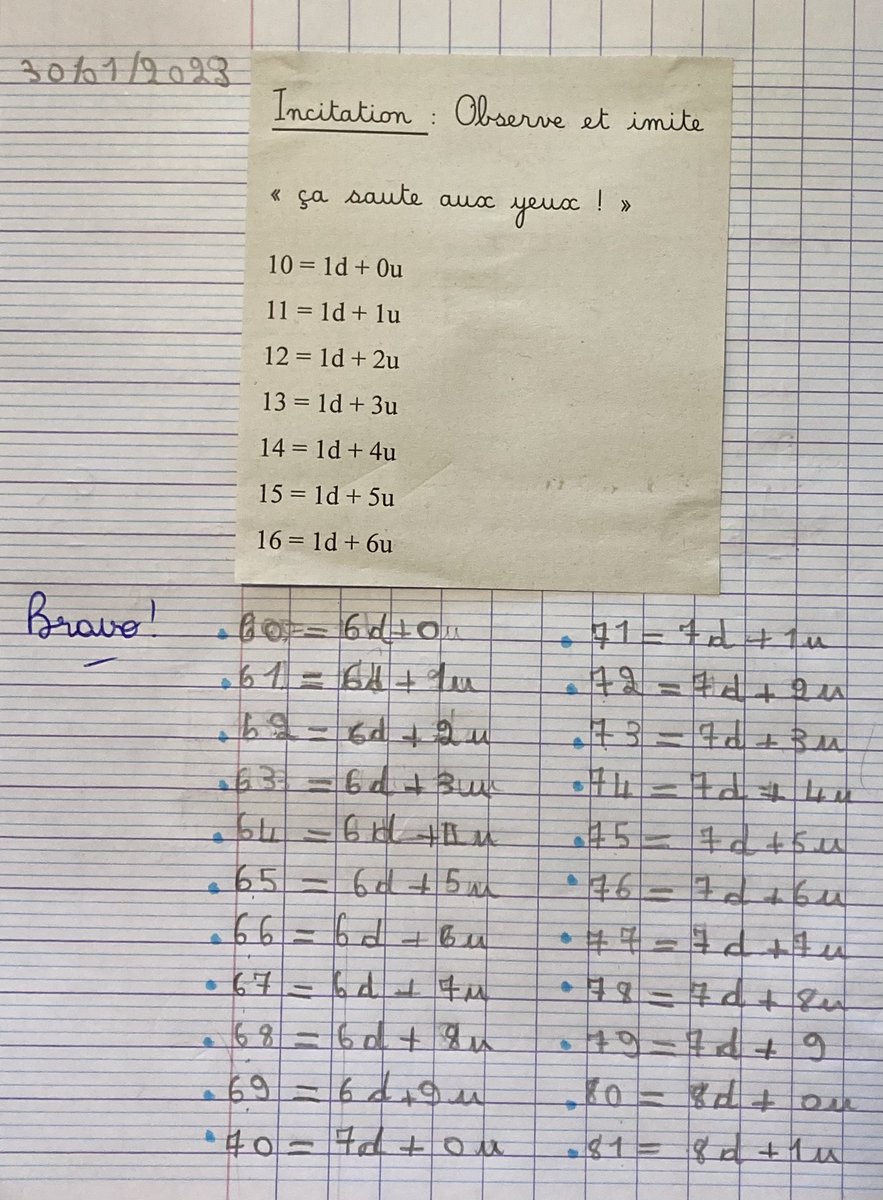 30/01/2023
Incitation : Observe et imite
« ça saute aux yeux ! »
10 = 1d + 0u
11 = 1d + 1u
12 = 1d + 2u
13 = 1d + 3u
14 = 1d + 4u
15 = 1d + 5u
16 = 1d + 6u
Bravo !
60 = 6d + 0u
61 = 6d + 1u
62 = 6d + 2u
63 = 6d + 3u
64 = 6d + 4u
65 = 6d + 5u
66 = 6d + 6u
67 = 6d + 7u
68 = 6d + 8u
69 = 6d + 9u
70 = 7d + 0u
71 = 7d + 1u
72 = 7d + 2u
73 = 7d + 3u
74 = 7d + 4u
75 = 7d + 5u
76 = 7d + 6u
77 = 7d + 7u
78 = 7d + 8u
79 = 7d + 9
80 = 8d + 0u
81 = 8d + 1u